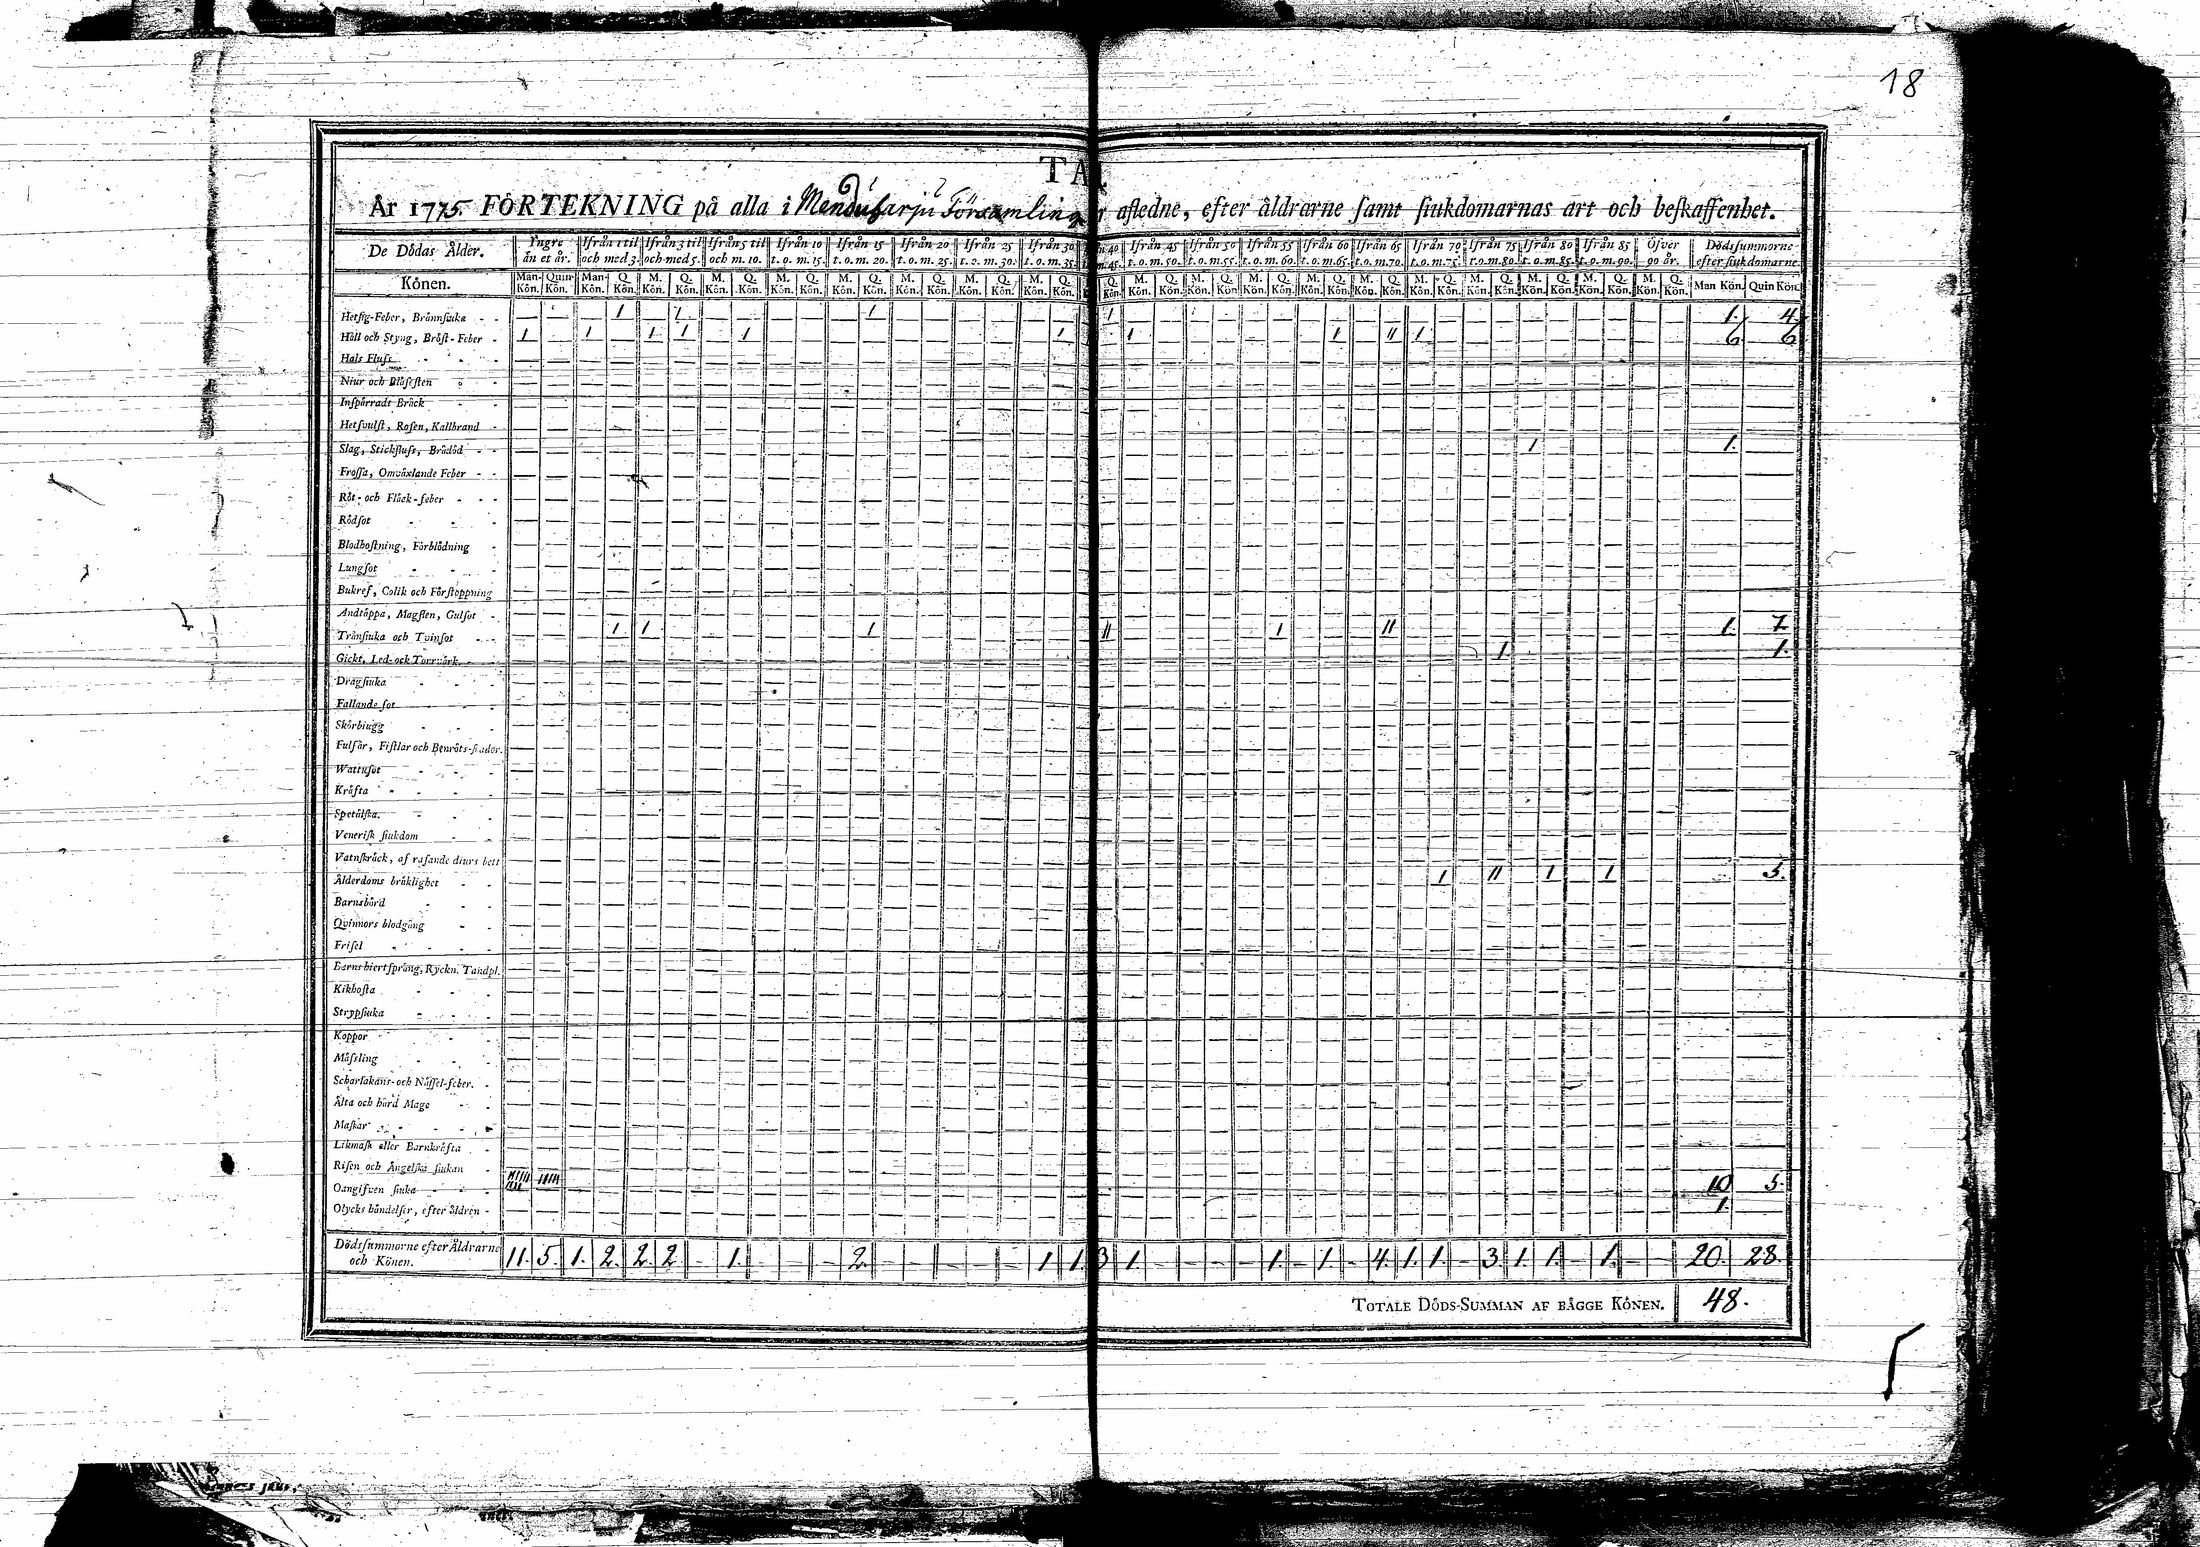 18
TA
År 1775. FÖRTEKNING på alla i Menduharju Församling afledne, efter åldrarne samt siukdomarnas art och beskaffenhet.
De Dödas Ålder. Yngre än et år. Ifrån 1 til och med 3. Ifrån 3 til och med 5. Ifrån 5 til och m. 10. Ifrån 10 t. o. m. 15. Ifrån 15 t. o. m. 20. Ifrån 20 t. o. m. 25. Ifrån 25 t. o. m. 30. Ifrån 30 t. o. m. 35. 40 m. 45. Ifrån 45 t. o. m. 50. Ifrån 50 t. o. m. 55. Ifrån 55 t. o. m. 60. Ifrån 60 t. o. m. 65. Ifrån 65 t. o. m. 70. Ifrån 70 t. o. m. 75. Ifrån 75 t. o. m. 80. Ifrån 80 t. o. m. 85. Ifrån 85 t. o. m. 90. Öfver 90 år. Dödssummorne efter siukdomarne
Könen. Man-Kön. Quin-Kön. Man-Kön. Q. Kön. M. Kön. Q. Kön. M. Kön. Q. Kön. M. Kön. Q. Kön. M. Kön. Q. Kön. M. Kön. Q. Kön. M. Kön. Q. Kön. M. Kön. Q. Kön. Q. Kön. M. Kön. Q. Kön. M. Kön. Q. Kön. M. Kön. Q. Kön. M. Kön. Q. Kön. M. Kön. Q. Kön. M. Kön. Q. Kön. M. Kön. Q. Kön. M. Kön. Q. Kön. M. Kön. Q. Kön. M. Kön. Q. Kön. Man Kön. Quin Kön.
Hetsig-Feber, Brännsiuka - - 1 1 1 1 1. 4.
Håll och Styng, Bröst-Feber - 1 1 1 1 1 1 1 1 11 1 6. 6.
Hals Fluss
Niur och Blåsesten
Inspärradt Bråck
Hetsvulst, Rosen, Kallbrand
Slag, Stickfluss, Brådöd - - 1 1.
Frossa, Omväxlande Feber - -
Röt- och Fläck-feber - - -
Rödsot
Blodhostning, Förblödning
Lungsot
Bukref, Colik och Förstoppning
Andtäppa, Magsten, Gulsot -
Tränsiuka och Tvinsot 1 1 1 11 1 11 1. 7.
Gickt, Led- och Torrvärk 1 1.
Dragsiuka
Fallande sot
Skörbiugg
Fulsår, Fistlar och Benröts-skador.
Wattusot
Kräfta
Spetälska.
Venerisk siukdom
Vatnskräck, af rasande diurs bett
Ålderdoms bräklighet 1 11 1 1 5.
Barnsbörd
Qvinnors blodgång
Frisel
Barns hiertsprång, Ryckn. Tandpl.
Kikhosta
Strypsiuka
Koppor
Mässling
Scharlakans- och Nässel-feber.
Älta och hård Mage
Maskar
Likmask eller Barnkräfta
Risen och Ängelska siukan
Oangifven siuka 10 5.
Olycks händelser, efter åldren - 1.
Dödssummorne efter Åldrarne och Könen. 11. 5. 1. 2. 2. 2 - 1. - - - 2. - - - - - 1 1. 3 1. - - - - 1. - 1. - 4. 1. 1. - 3. 1. 1. - 1. - - 20. 28.
TOTALE DÖDS-SUMMAN AF BÄGGE KÖNEN. 48.